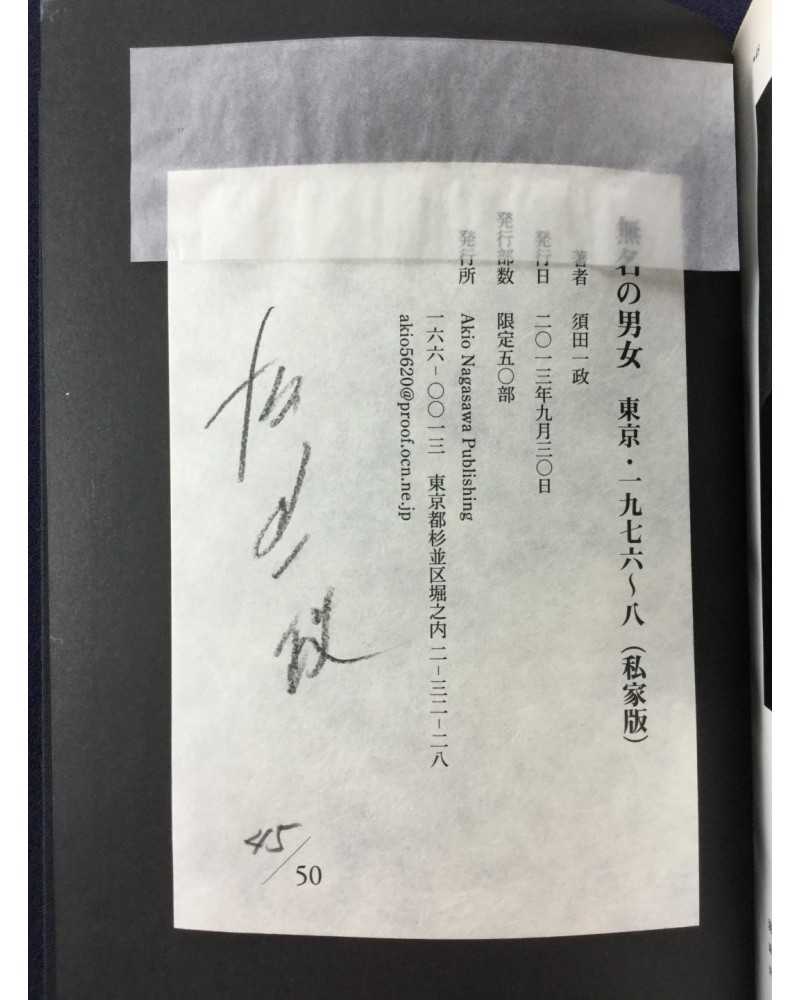 無名の男女　東京・一九七六～八（私家版）
著者　須田一政
発行日　二〇一三年九月三〇日
発行部数　限定五〇部
発行所　Akio Nagasawa Publishing
一六六－〇〇一三　東京都杉並区堀之内二－三二－二八
akio5620@proof.ocn.ne.jp
45/50